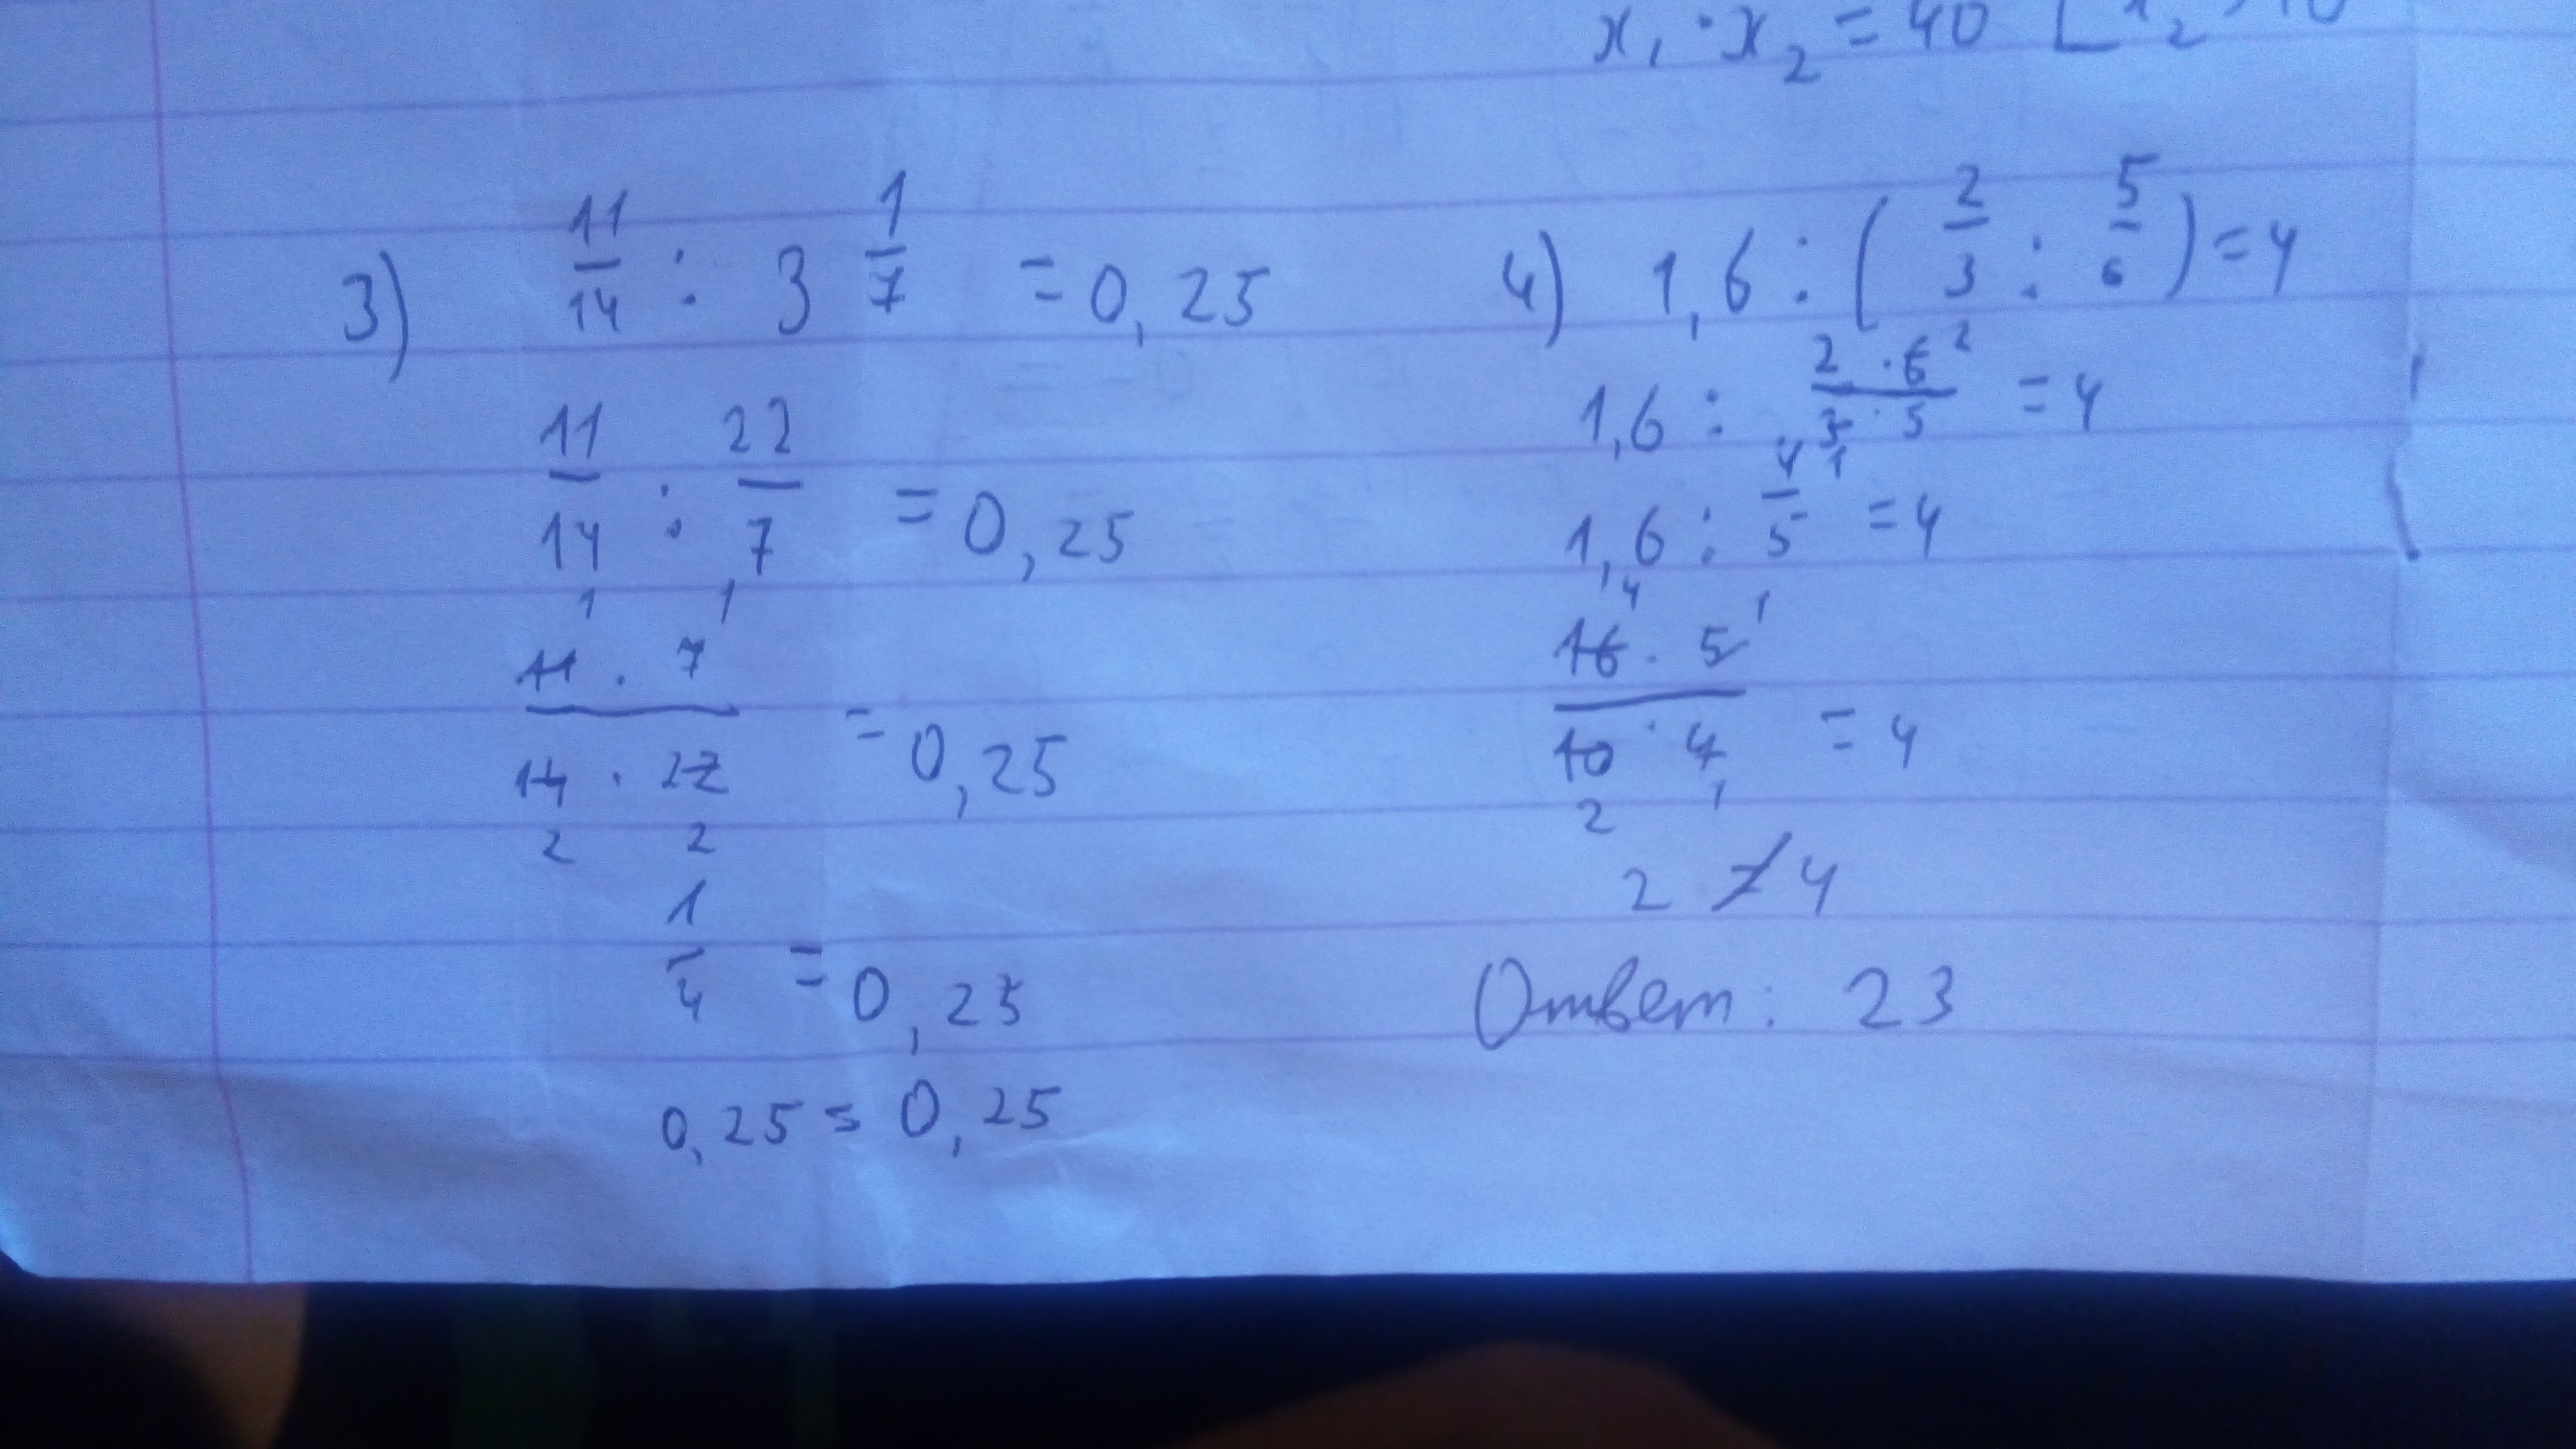 x₁ · x₂ = 40
3) 11/14 : 3 1/7 = 0,25
11/14 : 22/7 = 0,25
1 1
11 · 7 / 14 · 22 = 0,25
2 2
1/4 = 0,25
0,25 = 0,25
4) 1,6 : (2/3 : 5/6) = 4
1,6 : 2 · 6² / 3 · 5 = 4
1
1,6 : 4/5 = 4
4 1
16 · 5 / 10 · 4 = 4
2 1
2 ≠ 4
Ответ: 23